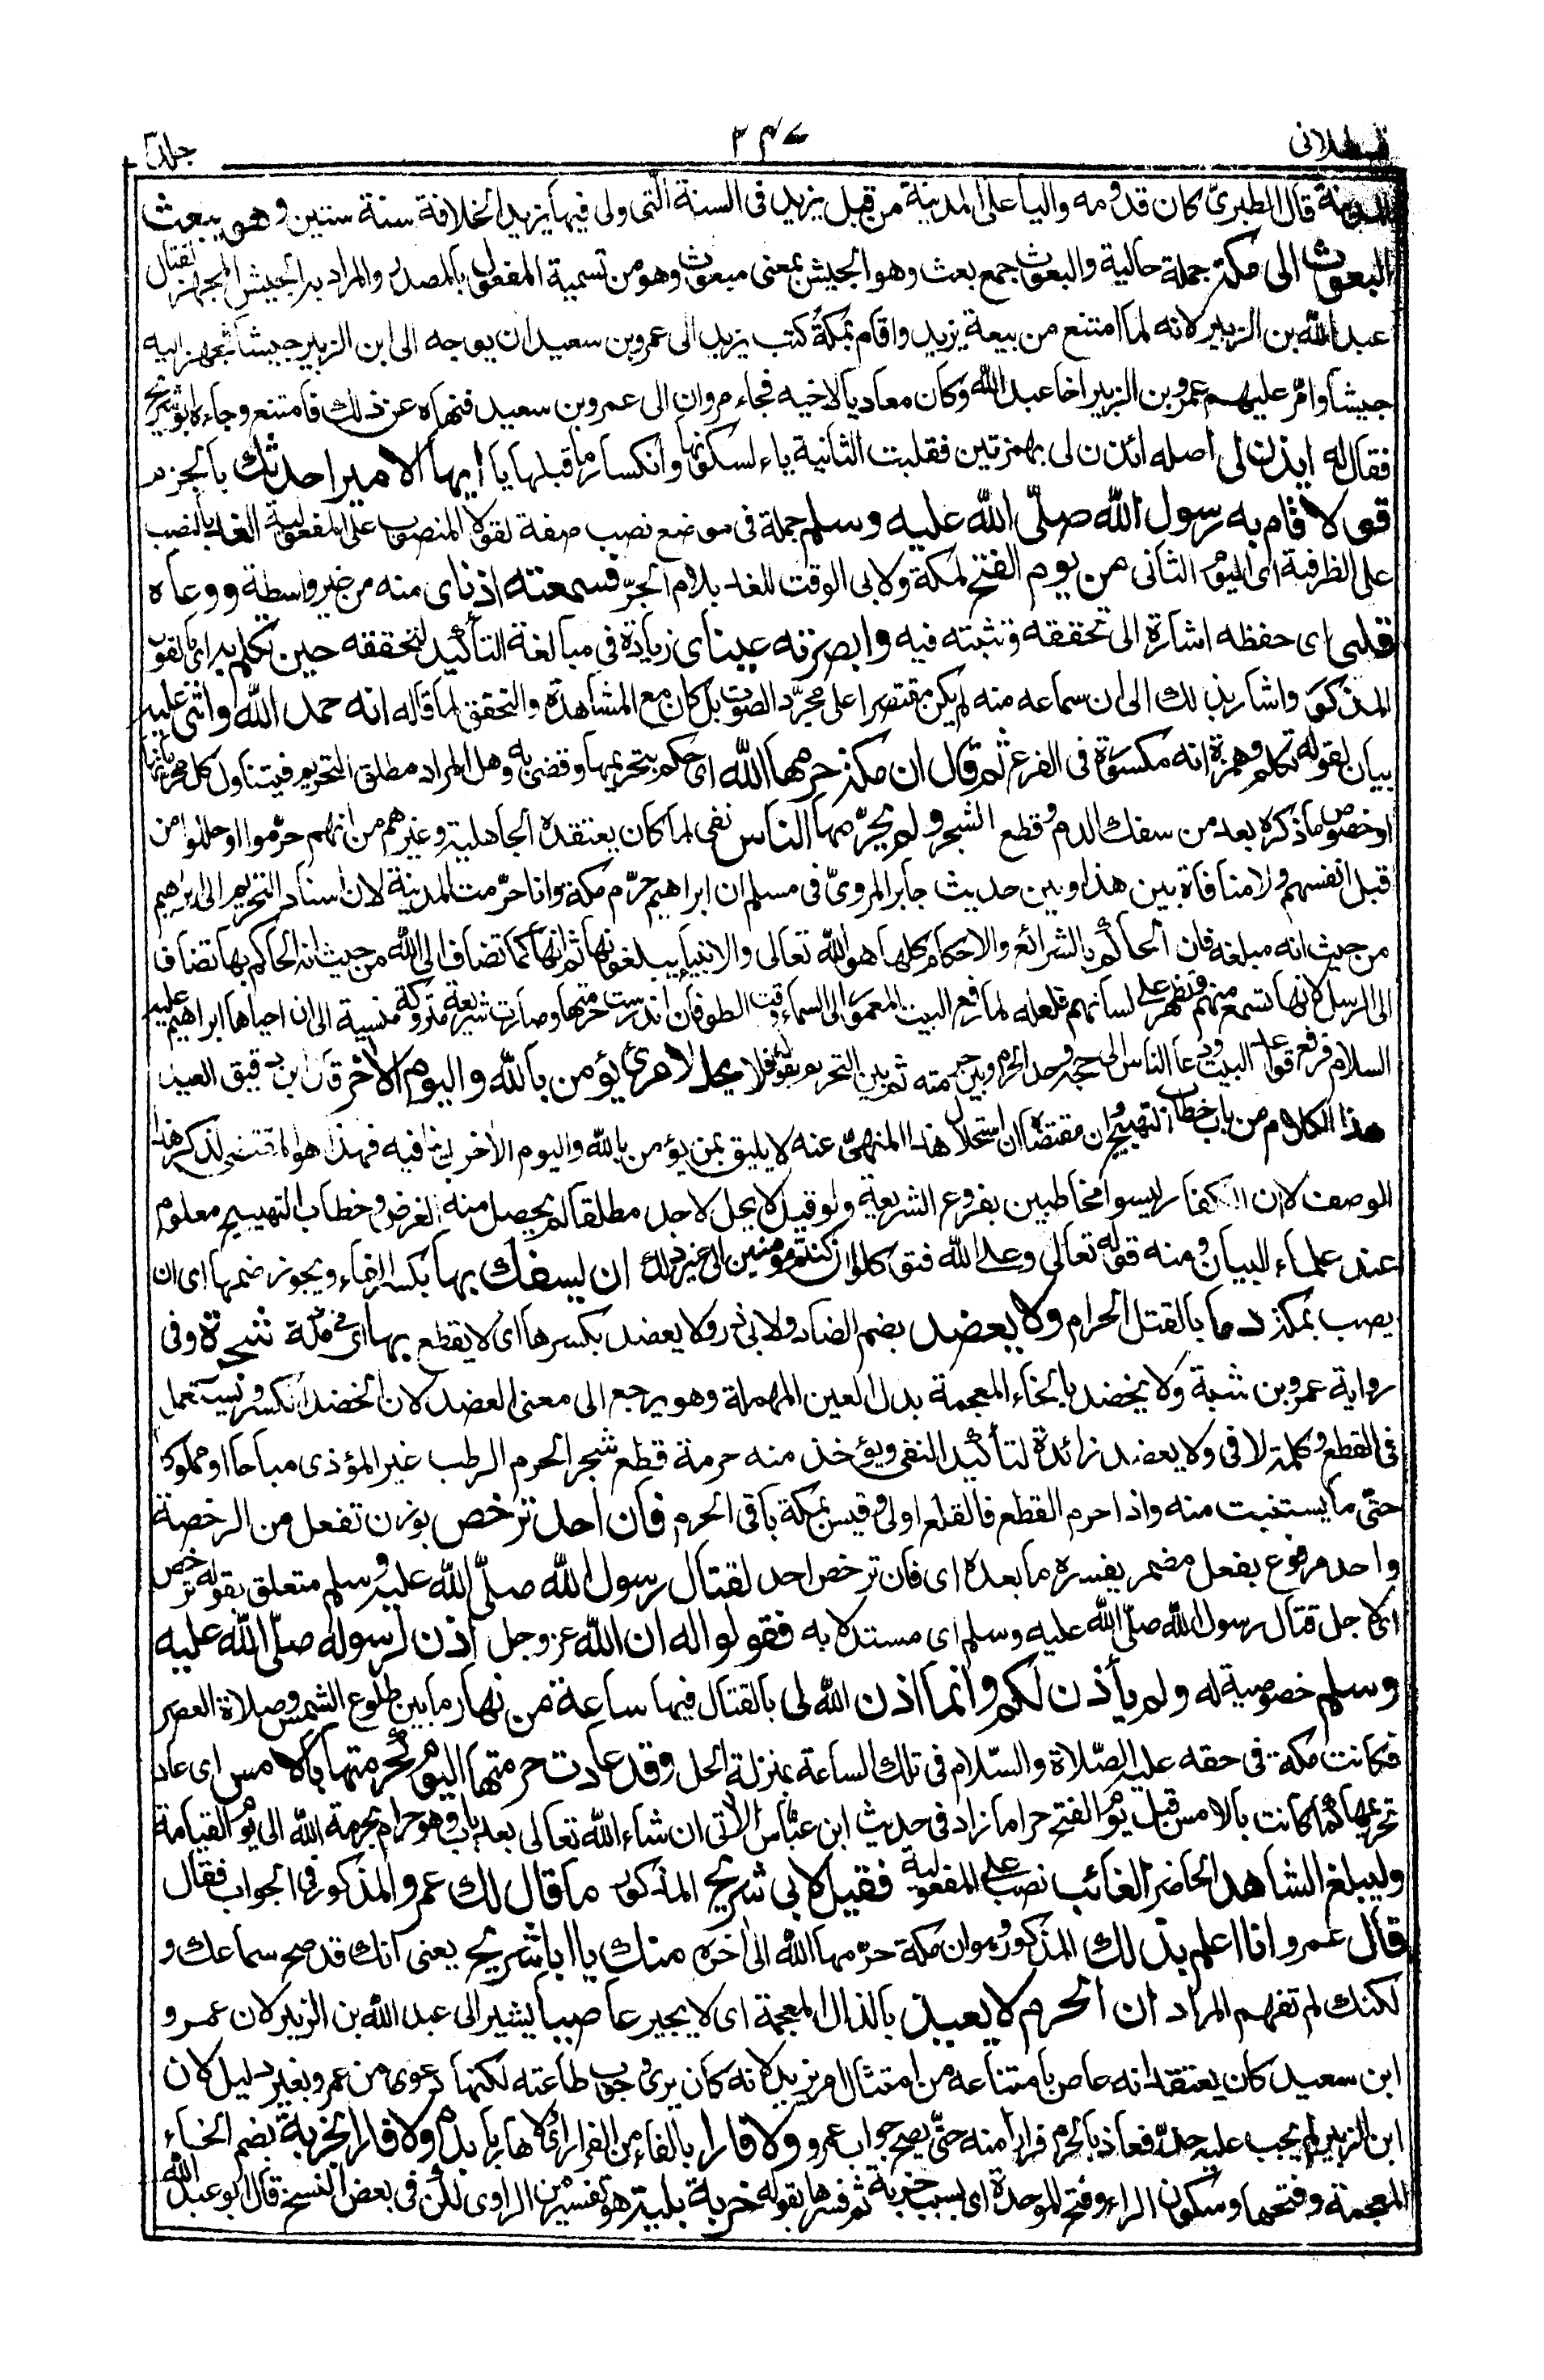 قسطلانی ٣٤٧ جلد٣
المدينة قال الطبرىّ كان قدومه واليا على المدينة من قبل يزيد فى السنة الّتى ولى فيها يزيد الخلافة سنة ستين وهو يبعث
البعوث الى مكة جملة حالية والبعوث جمع بعث وهو الجيش بمعنى مبعوث وهو من تسمية المفعول بالمصدر والمراد به الجيش المجهز لقتال
عبد اللّٰه بن الزبير لانه لما امتنع من بيعة يزيد واقام بمكة كتب يزيد الى عمرو بن سعيد ان يوجه الى ابن الزبير جيشا فجهز اليه
جيشا وامّر عليهم عمرو بن الزبير اخا عبد اللّٰه وكان معاديا لاخيه فجاء مروان الى عمرو بن سعيد فنهاه عن ذلك فامتنع وجاءه ابو شريح
فقال له ايذن لى اصله ائذن لى بهمزتين فقلبت الثانية ياء لسكونها وانكسار ما قبلها يا ايها الامير احدثك بالجزم
قولا قام به رسول اللّٰه صلّى اللّٰه عليه وسلم جملة فى موضع نصب صفة لقولا المنصوب على المفعولية الغد بالنصب
على الظرفية اى اليوم الثانى من يوم الفتح لمكة ولابى الوقت للغد بلام الجرّ فسمعته اذناى منه من غير واسطة ووعاه
قلبى اى حفظه اشارة الى تحققه وتثبته فيه وابصرته عيناى زيادة فى مبالغة التأكيد لتحققه حين تكلم به اى بالقول
المذكور واشار بذلك الى ان سماعه منه لم يكن مقتصرا على مجرّد الصوت بل كان مع المشاهدة والتحقق لما قاله انه حمد اللّٰه واثنى عليه
بيان لقوله تكلم وهمزة انه مكسورة فى الفرع ثم قال ان مكة حرمها اللّٰه اى حكم بتحريمها وقضى به وهل المراد مطلق التحريم فيتناول كل محرماتها
او خصوص ما ذكره بعد من سفك الدم وقطع الشجر ولم يحرّمها الناس نفى لما كان يعتقده الجاهلية وغيرهم من انهم حرّموا او حللوا من
قبل انفسهم ولا منافاة بين هذا وبين حديث جابر المروىّ فى مسلم ان ابراهيم حرّم مكة وانا حرّمت المدينة لان اسناد التحريم الى ابراهيم
من حيث انه مبلغه فان الحاكم بالشرائع والاحكام كلها هو اللّٰه تعالى والانبياء يبلغونها ثم انها كما تضاف الى اللّٰه من حيث انه الحاكم بها تضاف
الى الرسل لانها تسمع منهم وتظهر على لسانهم فلعله لما رفع البيت المعمور الى السماء وقت الطوفان اندرست حرمتها وصارت شريعة متروكة منسية الى ان احياها ابراهيم عليه
السلام فرفع قواعد البيت ودعا الناس الى حجه وحد الحرم وبين حرمته ثم بين التحريم بقوله فلا يحل لامرئ يؤمن باللّٰه واليوم الاخر قال ابن دقيق العيد
هذا الكلام من باب خطاب التهييج وان مقتضاه ان استحلال هذا المنهىّ عنه لا يليق بمن يؤمن باللّٰه واليوم الاخر بل ينافيه فهذا هو المقتضى لذكر هذا
الوصف لان الكفار ليسوا مخاطبين بفروع الشريعة ولو قيل لا يحل لاحد مطلقا لم يحصل منه الغرض وخطاب التهييج معلوم
عند علماء البيان ومنه قوله تعالى وعلى اللّٰه فتوكلوا ان كنتم مؤمنين الى غير ذلك ان يسفك بها بكسر الفاء ويجوز ضمها اى ان
يصب بمكة دما بالقتل الحرام ولا يعضد بضم الضاد ولابى ذر ولا يعضد بكسرها اى لا يقطع بها اى فى مكة شجرة وفى
رواية عمرو بن شبة ولا يخضد بالخاء المعجمة بدل العين المهملة وهو يرجع الى معنى العضد لان الخضد الكسر ويستعمل
فى القطع وكلمة لا فى ولا يعضد زائدة لتأكيد النفى ويؤخذ منه حرمة قطع شجر الحرم الرطب غير المؤذى مباحا او مملوكا
حتّى ما يستنبت منه واذا حرم القطع فالقلع اولى وقيس بمكة باقى الحرم فان احد ترخص بوزن تفعل من الرخصة
واحد مرفوع بفعل مضمر يفسره ما بعده اى فان ترخص احد لقتال رسول اللّٰه صلّى اللّٰه عليه وسلم متعلق بقوله ترخص
اى لاجل قتال رسول اللّٰه صلّى اللّٰه عليه وسلم اى مستدلا به فقولوا له ان اللّٰه عز وجل اذن لرسوله صلّى اللّٰه عليه
وسلم خصوصية له ولم يأذن لكم وانما اذن اللّٰه لى بالقتال فيها ساعة من نهار ما بين طلوع الشمس وصلاة العصر
فكانت مكة فى حقه عليه الصّلاة والسّلام فى تلك الساعة بمنزلة الحل وقد عادت حرمتها اليوم كحرمتها بالامس اى عاد
تحريمها كما كانت بالامس قبل يوم الفتح حراما زاد فى حديث ابن عبّاس الأتى ان شاء اللّٰه تعالى بعد باب وهو حرام بحرمة اللّٰه الى يوم القيامة
وليبلغ الشاهد الحاضر الغائب نصب على المفعولية فقيل لابى شريح المذكور ما قال لك عمرو المذكور فى الجواب فقال
قال عمرو انا اعلم بذلك المذكور وهو ان مكة حرّمها اللّٰه الى اخره منك يا ابا شريح يعنى انك قد صح سماعك و
لكنك لم تفهم المراد ان الحرم لا يعيذ بالذال المعجمة اى لا يجير عاصيا يشير الى عبد اللّٰه بن الزبير لان عمرو
ابن سعيد كان يعتقد انه عاص بامتناعه من امتثال امر يزيد لانه كان يرى وجوب طاعته لكنها دعوى من عمرو بغير دليل لان
ابن الزبير لم يجب عليه حدّ فعاذ بالحرم فرارا منه حتّى يصح جواب عمرو ولا فارا بالفاء من الفرار اى لا هاربا بدم ولا فارا بخربة بضم الخاء
المعجمة وفتحها وسكون الراء وفتح الموحدة اى بسبب خربة ثم فسرها بقوله خربة بلية هو تفسير من الراوى لكن فى بعض النسخ قال ابو عبد اللّٰه